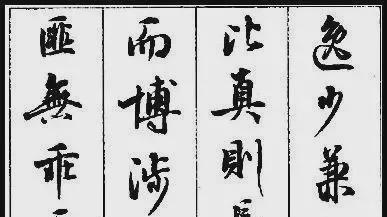 逸少兼
比真則長
而博涉
匪無乖